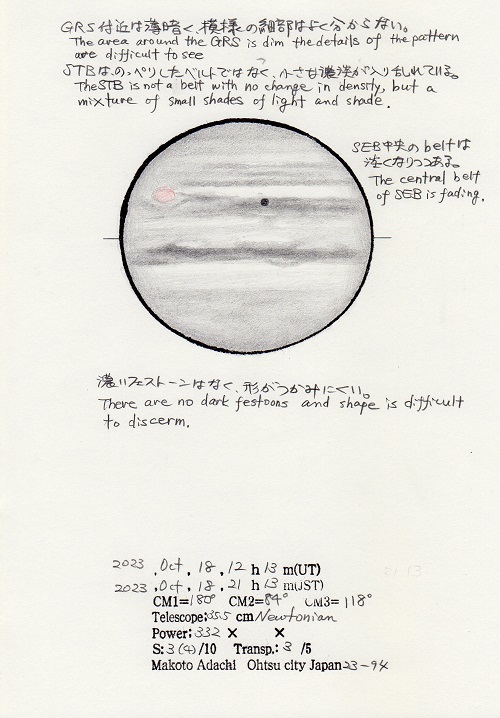 GRS付近は薄暗く、模様の細部はよく分からない。
The area around the GRS is dim the details of the pattern
are difficult to see
STBは、のっぺりしたベルトではなく、小さな濃淡が入り乱れている。
The STB is not a belt with no change in density, but a
mixture of small shades of light and shade.
SEB中央のbeltは
淡くなりつつある。
The central belt
of SEB is fading.
濃いフェストーンはなく、形がつかみにくい。
There are no dark festoons and shape is difficult
to discerm.
2023 . Oct , 18 , 12 h 13 m(UT)
2023 . Oct , 18 , 21 h 13 m(JST)
CM1= 180° CM2= 84° CM3= 118°
Telescope: 35.5 cm Newtonian
Power: 332 × ×
S: 3 (4) /10 Transp.: 3 /5
Makoto Adachi Ohtsu city Japan 23-94